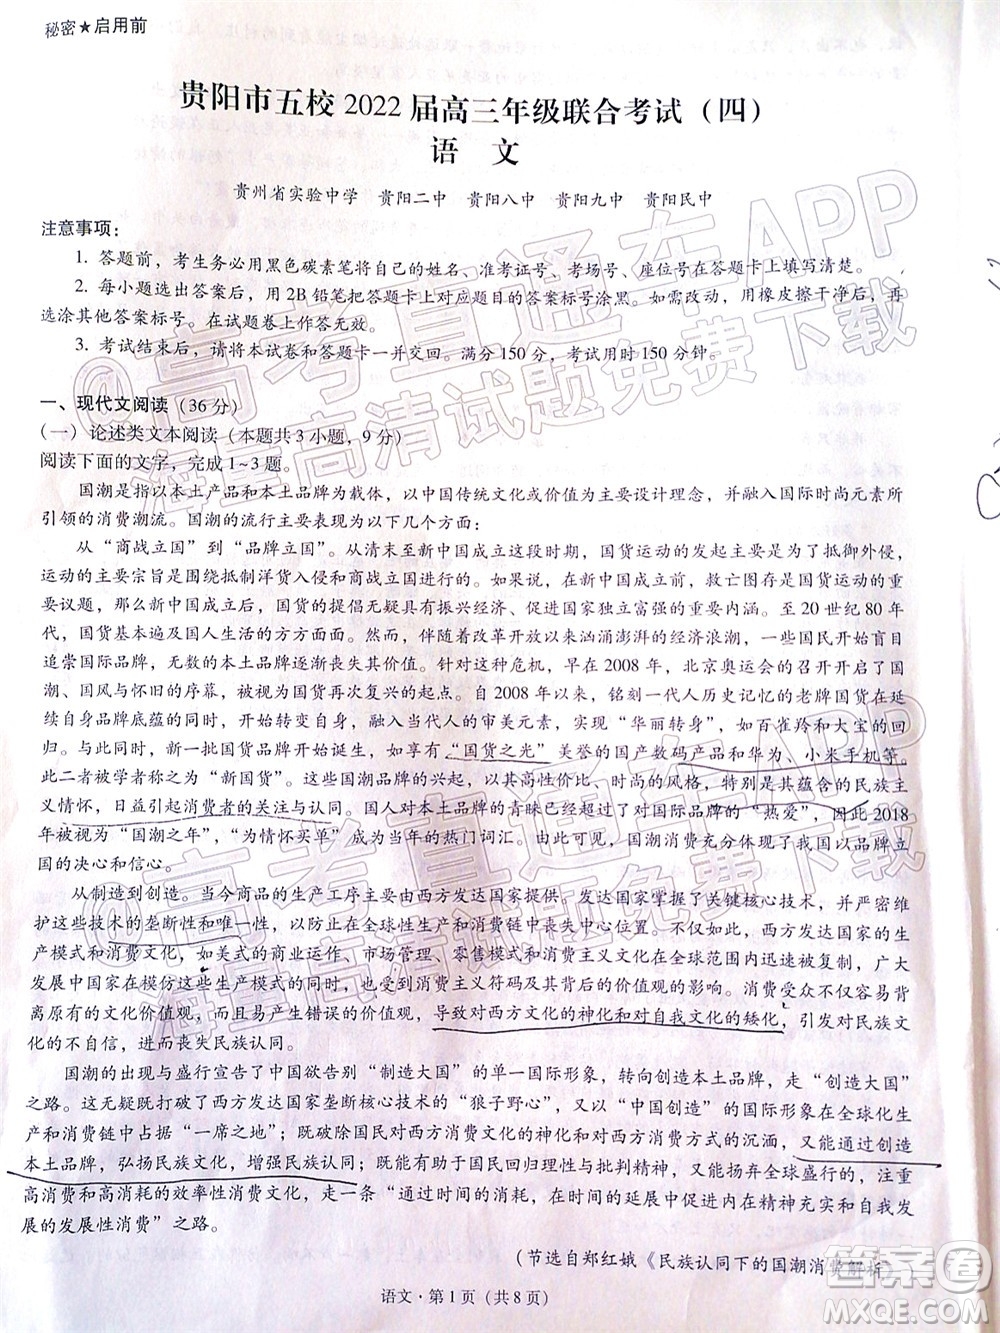 秘密★启用前
贵阳市五校 2022 届高三年级联合考试（四）
语 文
贵州省实验中学 贵阳二中 贵阳八中 贵阳九中 贵阳民中
注意事项：
1. 答题前，考生务必用黑色碳素笔将自己的姓名、准考证号、考场号、座位号在答题卡上填写清楚。
2. 每小题选出答案后，用 2B 铅笔把答题卡上对应题目的答案标号涂黑。如需改动，用橡皮擦干净后，再
选涂其他答案标号。在试题卷上作答无效。
3. 考试结束后，请将本试卷和答题卡一并交回。满分 150 分，考试用时 150 分钟。
一、现代文阅读（36 分）
（一）论述类文本阅读（本题共 3 小题，9 分）
阅读下面的文字，完成 1~3 题。
国潮是指以本土产品和本土品牌为载体，以中国传统文化或价值为主要设计理念，并融入国际时尚元素所
引领的消费潮流。国潮的流行主要表现为以下几个方面：
从“商战立国”到“品牌立国”。从清末至新中国成立这段时期，国货运动的发起主要是为了抵御外侵，
运动的主要宗旨是围绕抵制洋货入侵和商战立国进行的。如果说，在新中国成立前，救亡图存是国货运动的重
要议题，那么新中国成立后，国货的提倡无疑具有振兴经济、促进国家独立富强的重要内涵。至 20 世纪 80 年
代，国货基本遍及国人生活的方方面面。然而，伴随着改革开放以来汹涌澎湃的经济浪潮，一些国民开始盲目
追崇国际品牌，无数的本土品牌逐渐丧失其价值。针对这种危机，早在 2008 年，北京奥运会的召开开启了国
潮、国风与怀旧的序幕，被视为国货再次复兴的起点。自 2008 年以来，铭刻一代人历史记忆的老牌国货在延
续自身品牌底蕴的同时，开始转变自身，融入当代人的审美元素，实现“华丽转身”，如百雀羚和大宝的回
归。与此同时，新一批国货品牌开始诞生，如享有“国货之光”美誉的国产数码产品和华为、小米手机等。
此二者被学者称之为“新国货”。这些国潮品牌的兴起，以其高性价比、时尚的风格，特别是其蕴含的民族主
义情怀，日益引起消费者的关注与认同。国人对本土品牌的青睐已经超过了对国际品牌的“热爱”，因此 2018
年被视为“国潮之年”，“为情怀买单”成为当年的热门词汇。由此可见，国潮消费充分体现了我国以品牌
立国的决心和信心。
从制造到创造。当今商品的生产工序主要由西方发达国家提供，发达国家掌握了关键核心技术，并严密维
护这些技术的垄断性和唯一性，以防止在全球性生产和消费链中丧失中心位置。不仅如此，西方发达国家的生
产模式和消费文化，如美式的商业运作、市场管理、零售模式和消费主义文化在全球范围内的普及，致使广大
发展中国家在模仿这些生产模式的同时，也受到了消费主义符码及其价值观的误导。消费受众不但非常容易背
离原有的文化价值观，而且易产生错误的价值观，导致对西方文化的神化和对自我文化的矮化，引发对民族文
化的不自信，进而丧失民族认同。
国潮的出现与盛行宣告了中国欲告别“制造大国”的单一国际形象，转向创造本土品牌，走“创造大国”
之路。这无疑既打破了西方发达国家垄断核心技术的“狼子野心”，又以“中国创造”的国际形象在全球化生
产和消费链中占据“一席之地”；既破除国民对西方消费文化的神化以及对西方消费方式的沉湎，又能通过创造
本土品牌，弘扬民族文化，增强民族认同；既能有助于国民回归理性与批判精神，又能扬弃全球盛行的，注重
高消费和高消耗的效率性消费文化，走一条“通过时间的消耗，在时间的延展中促进内在精神充实和自我发
展的发展性消费”之路。
（节选自郑红娥《民族认同下的国潮消费解析》
语文·第 1 页（共 8 页）
@高考直通车APP
海量高清试题免费下载
@高考直通车APP
海量高清试题免费下载
答案卷
MXQE.COM